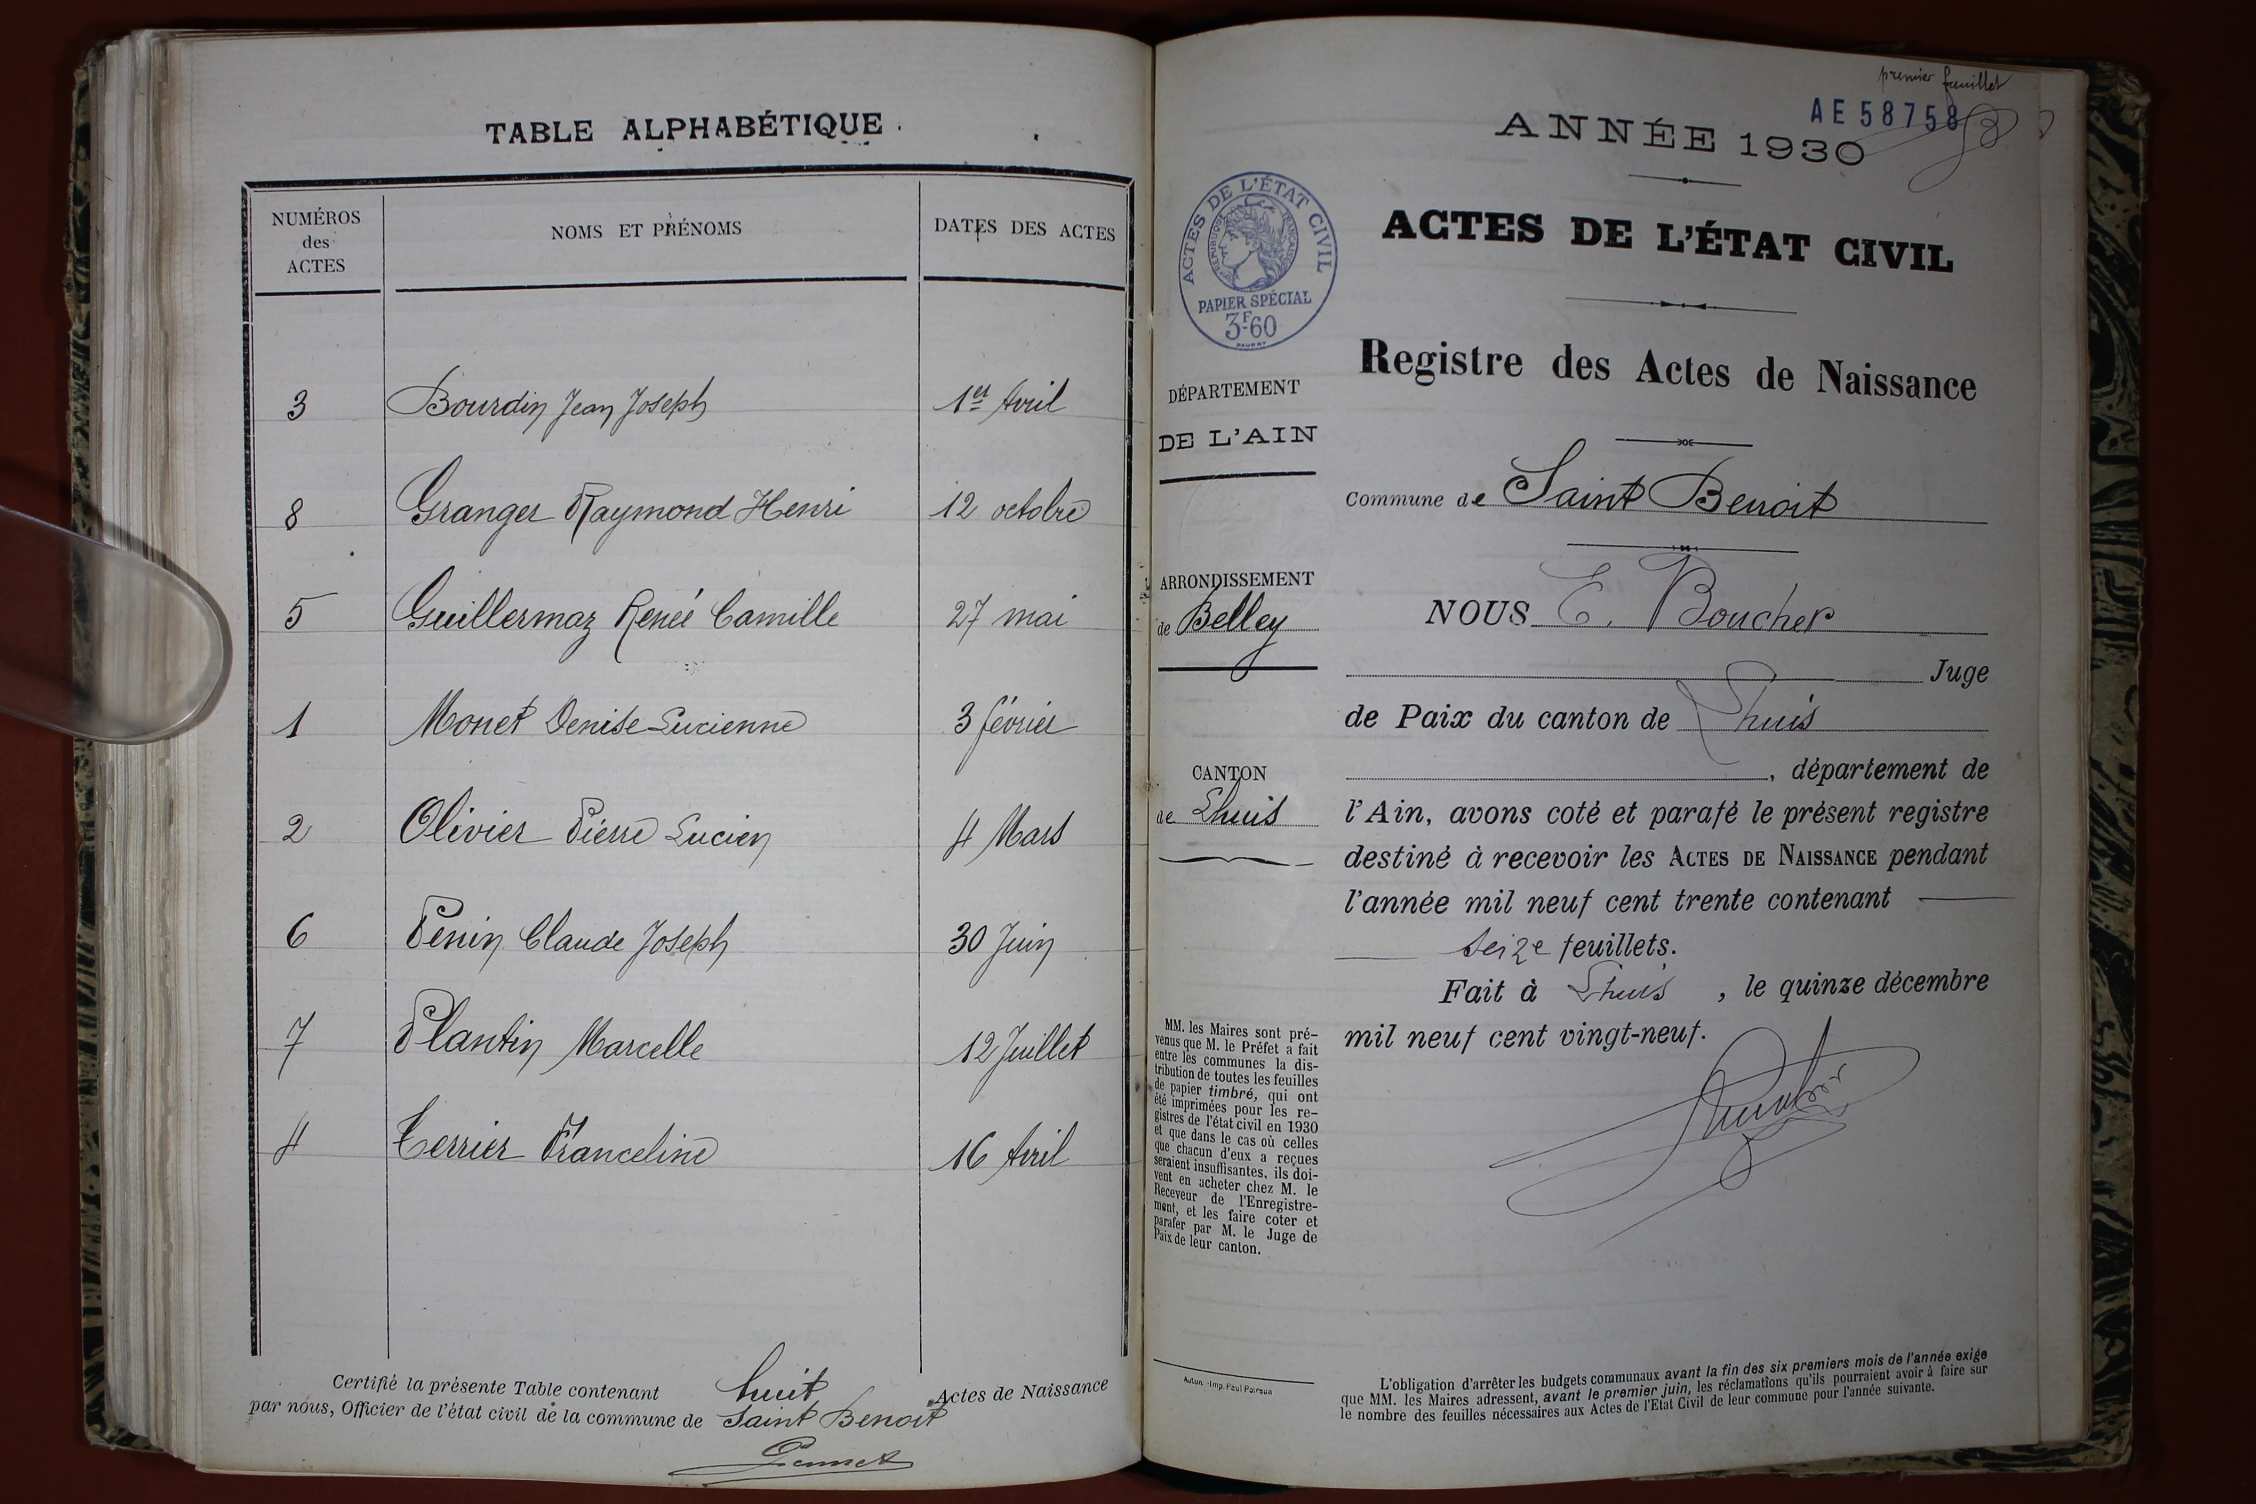 TABLE ALPHABÉTIQUE
NUMÉROS
des
ACTES
NOMS ET PRÉNOMS
DATES DES ACTES
3 Bourdin Jean Joseph 1er Avril
8 Granger Raymond Henri 12 octobre
5 Guillermaz Renée Camille 27 mai
1 Monet Denise Lucienne 3 février
2 Olivier Pierre Lucien 4 Mars
6 Penin Claude Joseph 30 Juin
7 Plantin Marcelle 12 Juillet
4 Terrier Franceline 16 Avril
Certifié la présente Table contenant huit Actes de Naissance
par nous, Officier de l'état civil de la commune de Saint Benoit
premier feuillet
AE 58758
ANNÉE 1930
ACTES DE L'ÉTAT CIVIL
ACTES DE L'ÉTAT CIVIL
RÉPUBLIQUE FRANÇAISE
PAPIER SPÉCIAL
3F60
Registre des Actes de Naissance
DÉPARTEMENT
DE L'AIN
Commune de Saint Benoit
ARRONDISSEMENT
de Belley
NOUS E. Boucher
Juge
de Paix du canton de Lhuis
CANTON
de Lhuis
, département de
l'Ain, avons coté et parafé le présent registre
destiné à recevoir les ACTES DE NAISSANCE pendant
l'année mil neuf cent trente contenant
seize feuillets.
Fait à Lhuis, le quinze décembre
mil neuf cent vingt-neuf.
MM. les Maires sont pré-
venus que M. le Préfet a fait
entre les communes la dis-
tribution de toutes les feuilles
de papier timbré, qui ont
été imprimées pour les re-
gistres de l'état civil en 1930
et que dans le cas où celles
que chacun d'eux a reçues
seraient insuffisantes, ils doi-
vent en acheter chez M. le
Receveur de l'Enregistre-
ment, et les faire coter et
parafer par M. le Juge de
Paix de leur canton.
Autun. - Imp. Paul Poirsua
L'obligation d'arrêter les budgets communaux avant la fin des six premiers mois de l'année exige
que MM. les Maires adressent, avant le premier juin, les réclamations qu'ils pourraient avoir à faire sur
le nombre des feuilles nécessaires aux Actes de l'Etat Civil de leur commune pour l'année suivante.